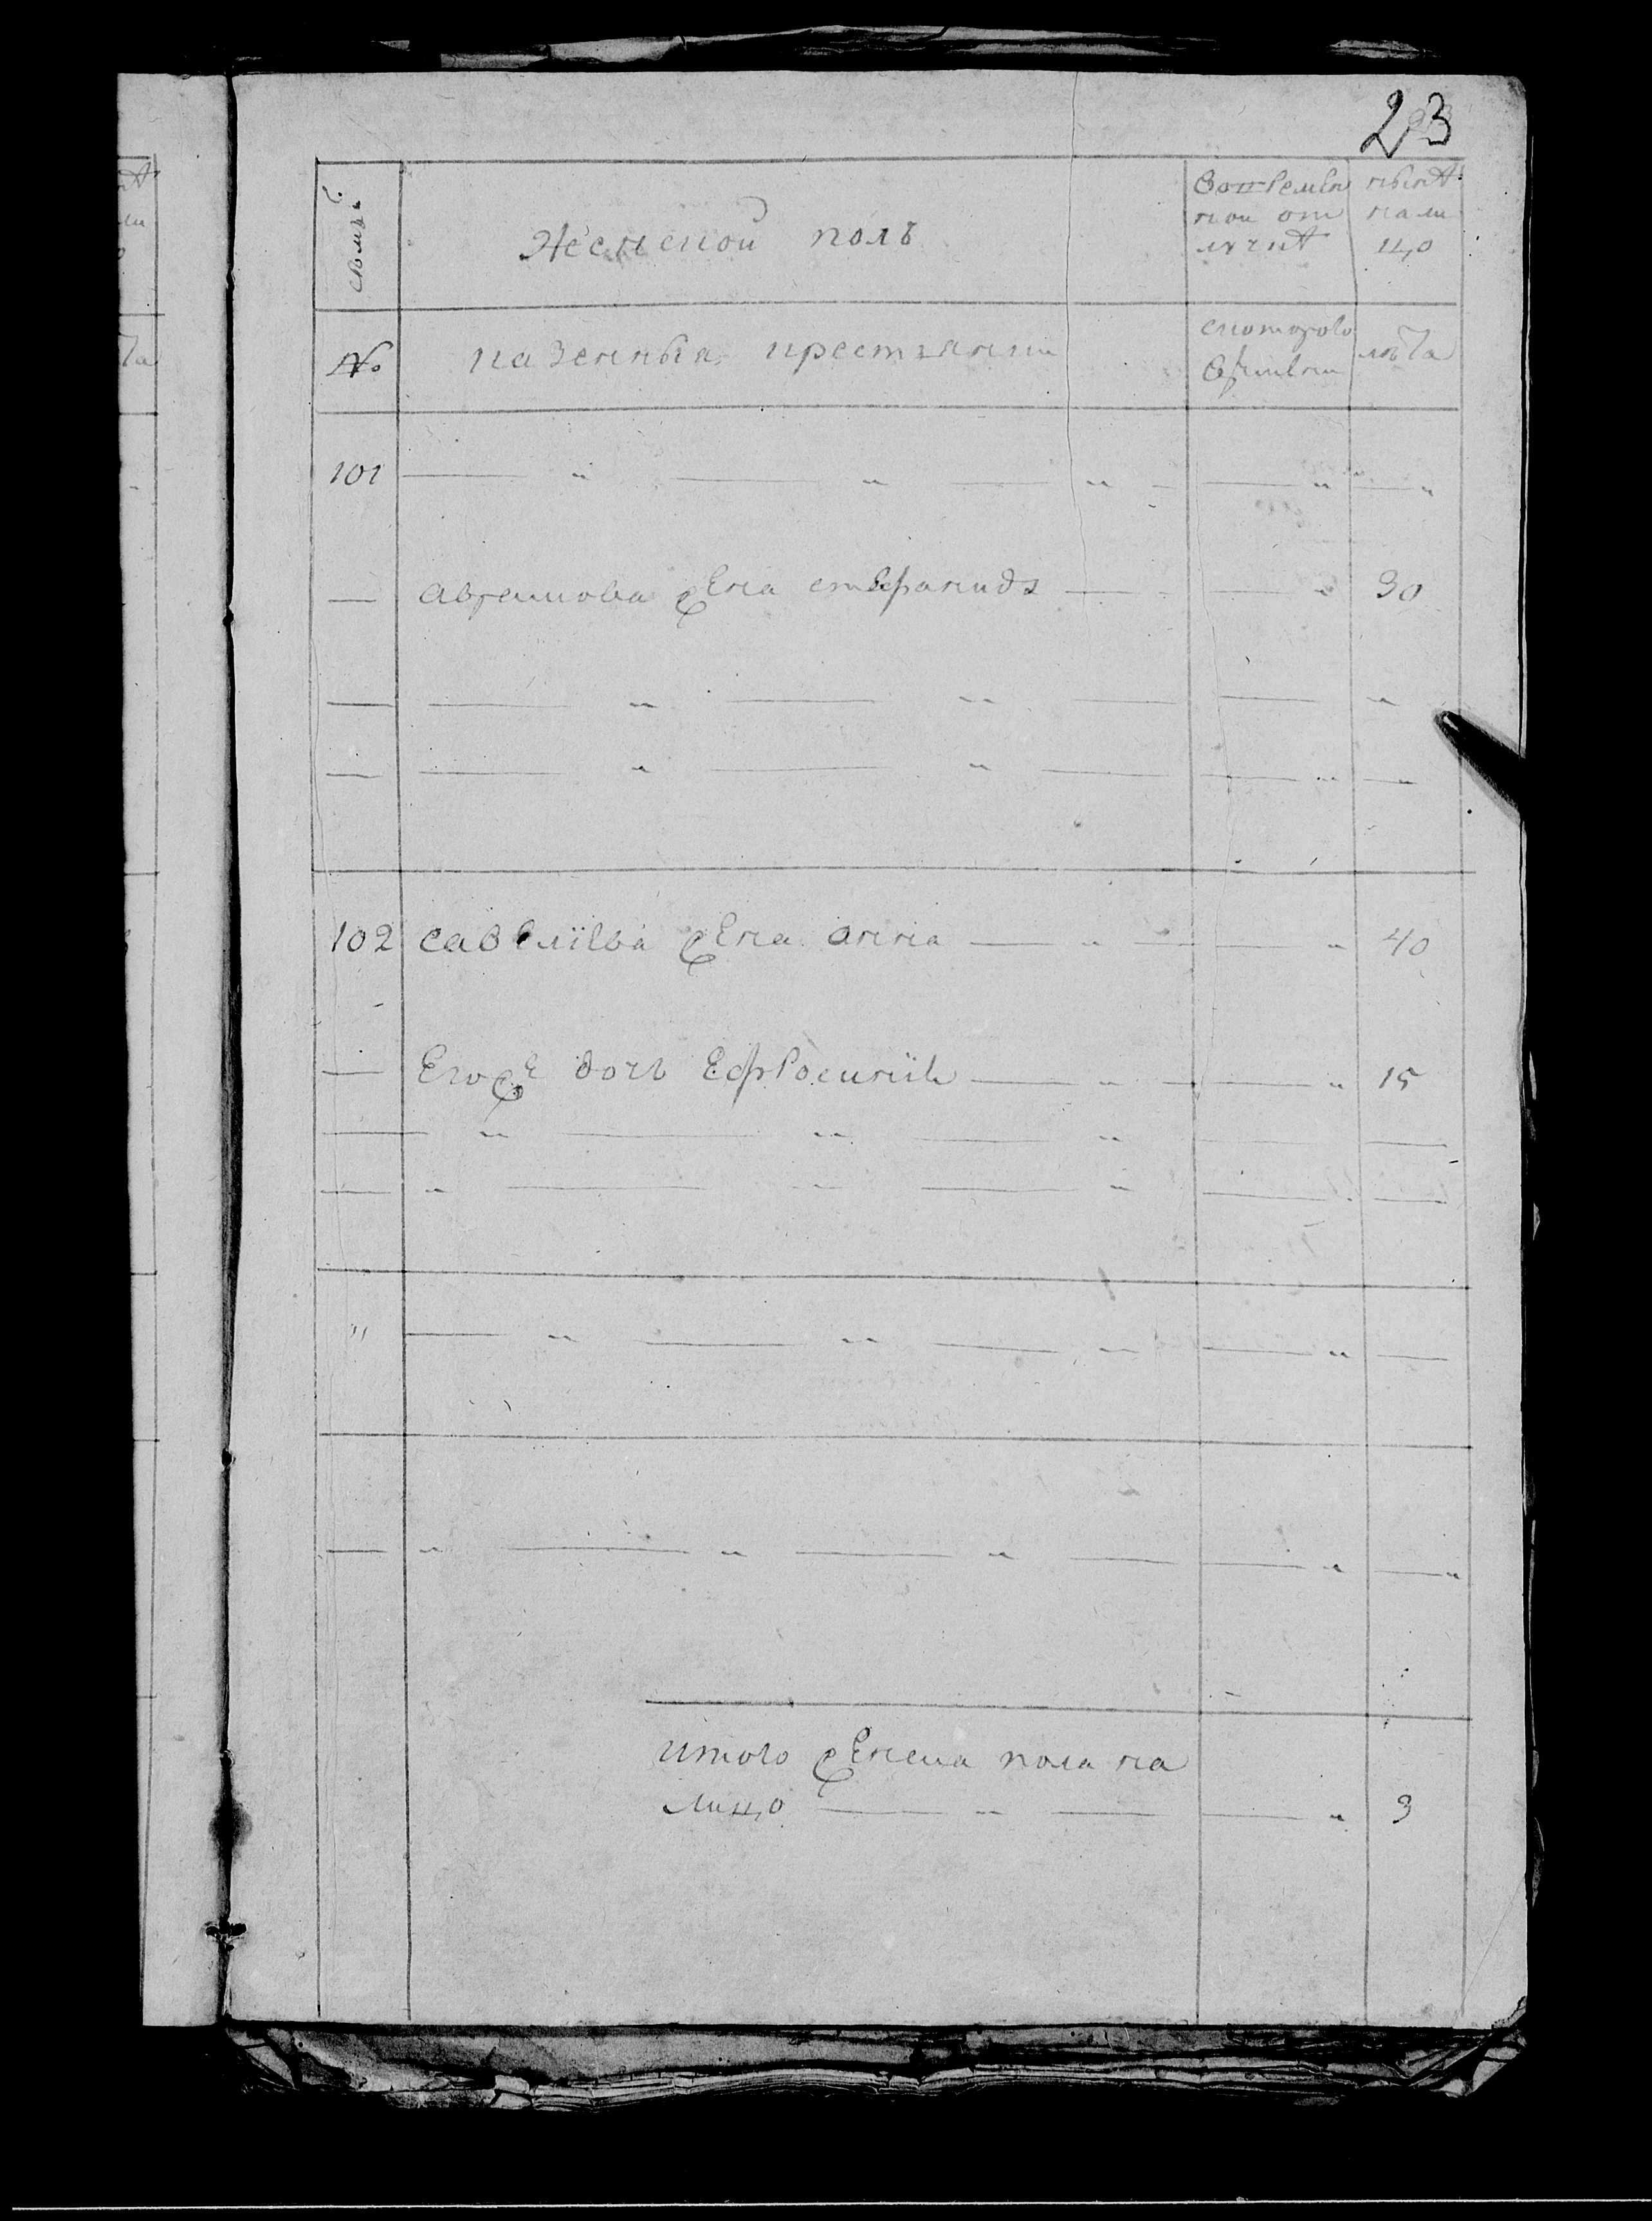 23
семьи
Женской полъ
Вовремен
ной от
лучке
ныне
на ли
цо
№
казенныя крестьянки
с которого
времени
лета
101
Авраамова жена степанида 30
102 савелиева жена анна 40
Егоже дочь Ефросиния 15
итого женска пола на
лицо 3